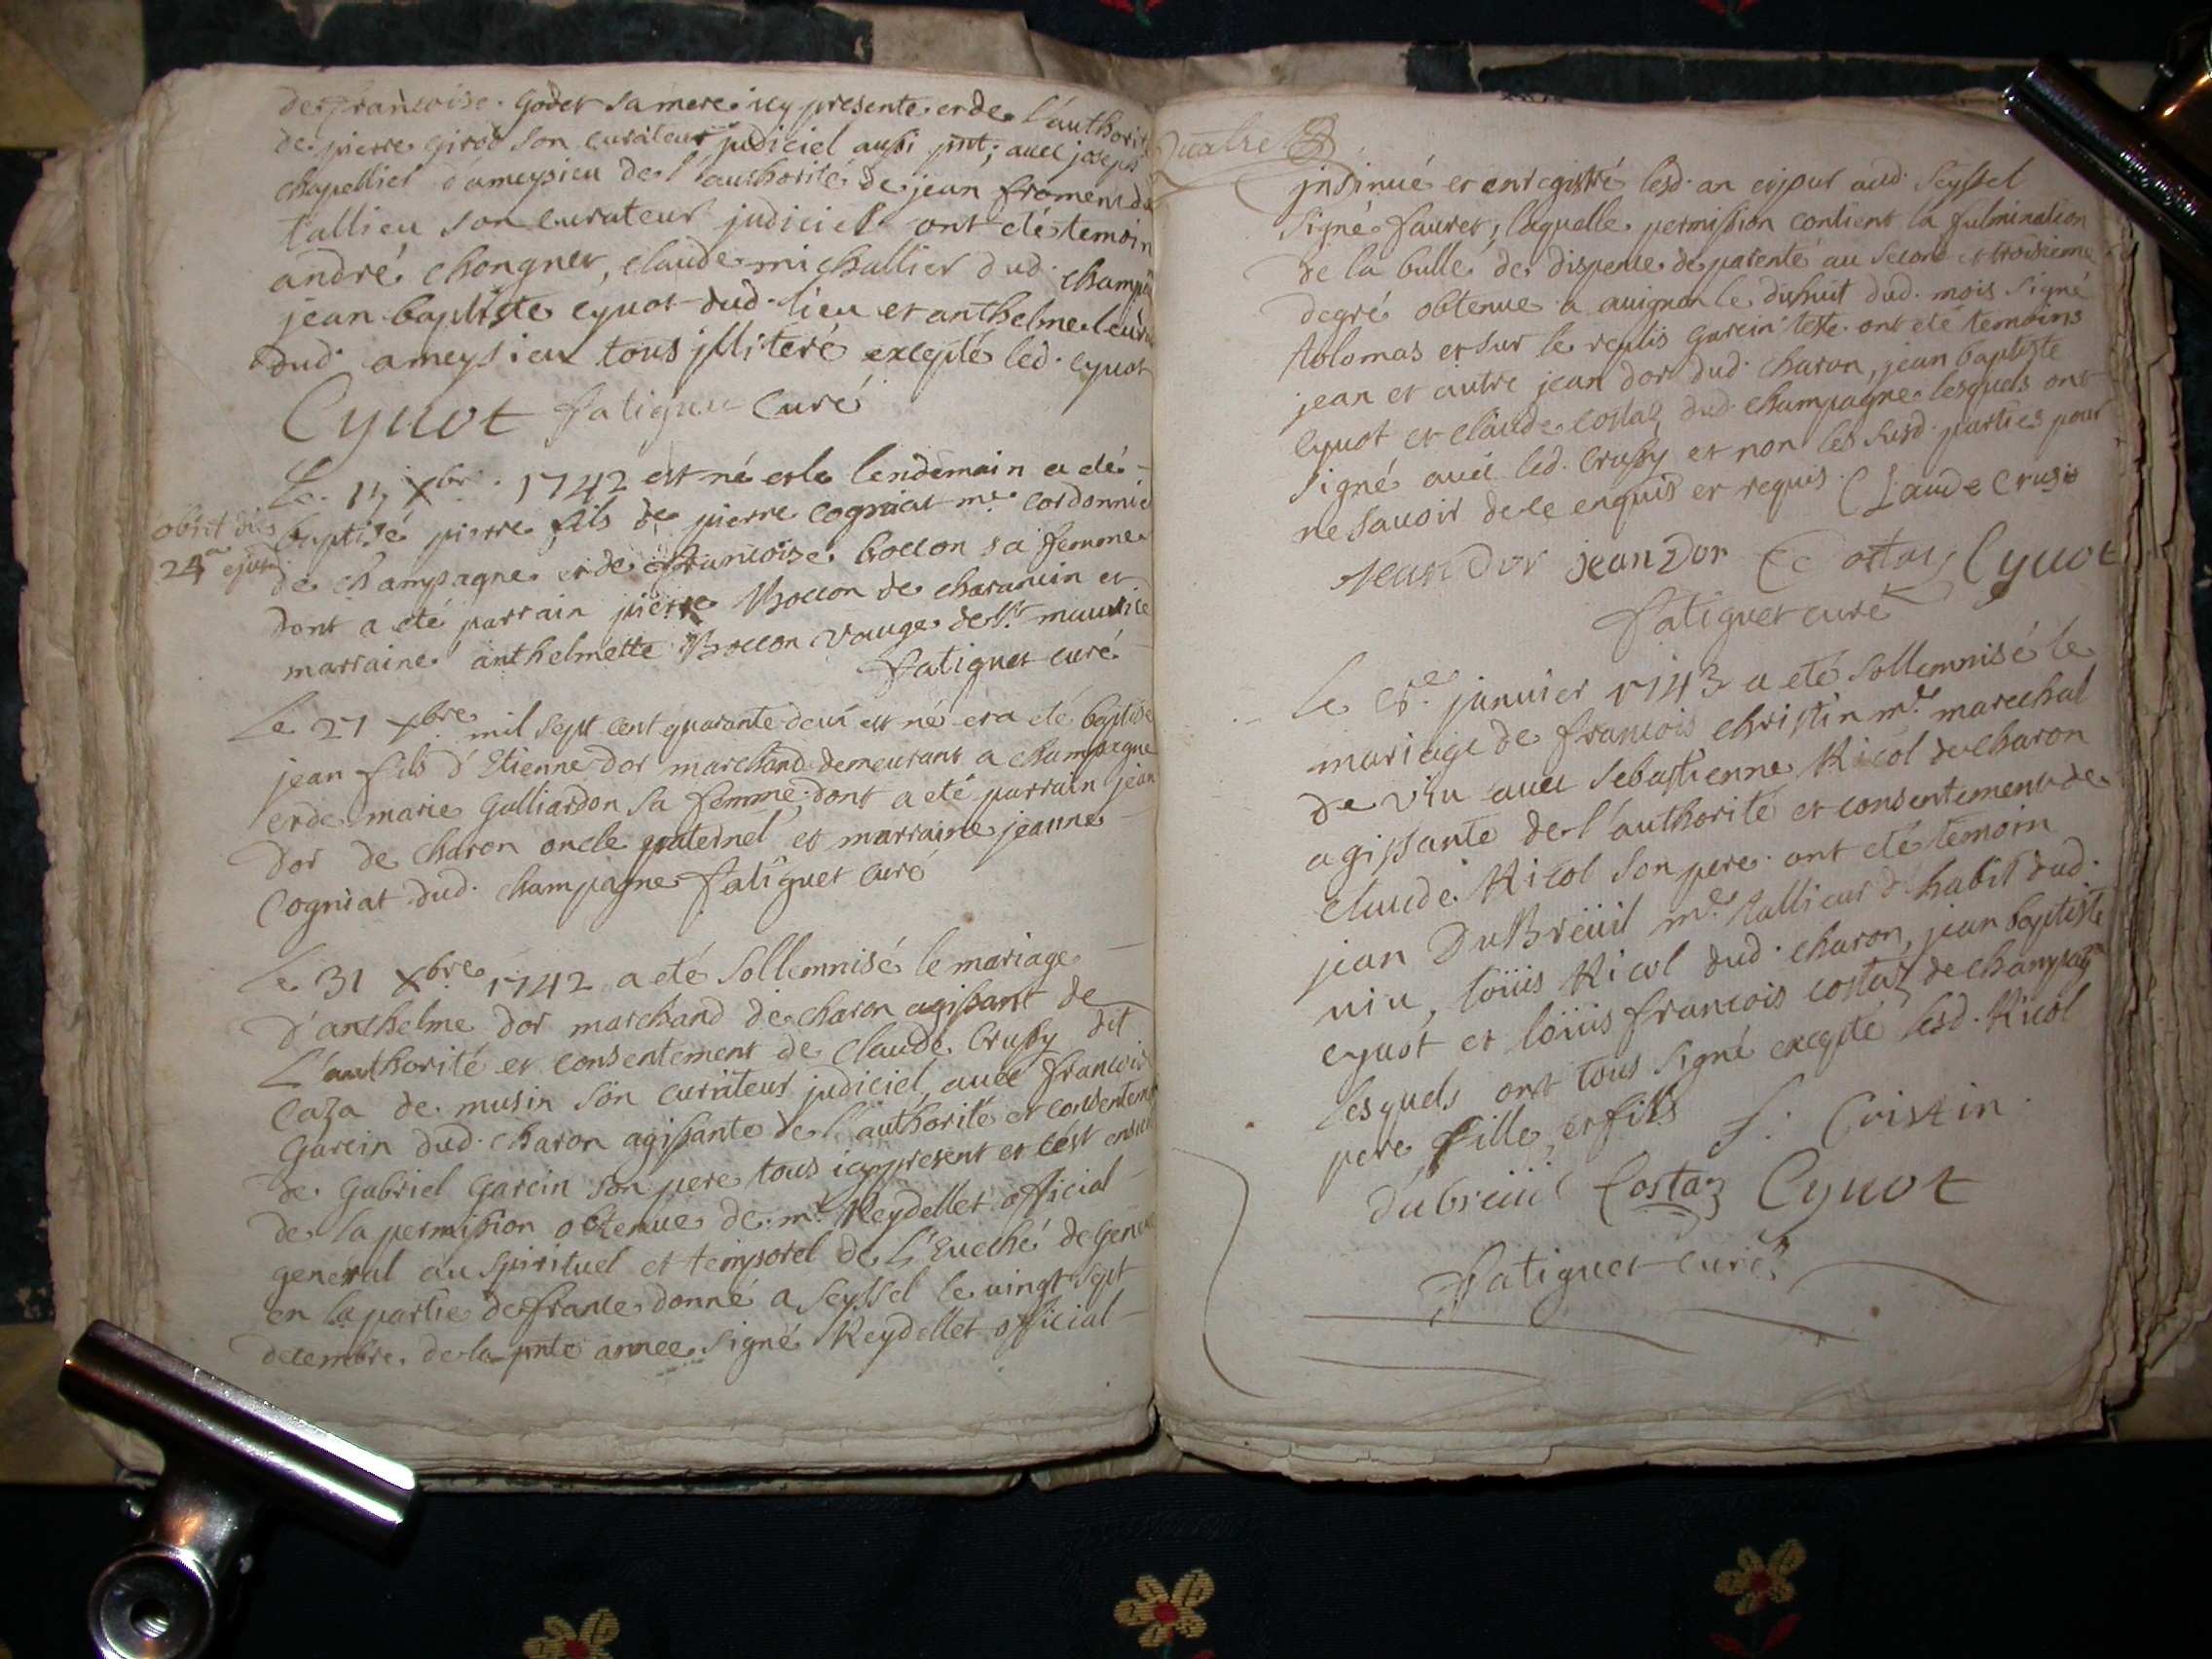 de françoise Godet sa mere icy presente et de l'authorité
de pierre girod son curateur judiciel aussi pnt; avec joseph
chapellier d'ameysieu de l'authorité de jean froment de
tallieu son curateur judiciel ont été temoin
andré chongnet, claude michallier dud. champ
jean baptiste cyuot dud. lieu et anthelme
dud. ameysieu tous jlliteré excepté led. cyuot
Cyuot fatiguet Curé
Le Xbre. 1742 est né et le lendemain a eté
baptisé pierre fils de pierre cogniat me. cordonnie
obiit dies
24a ejus
de champagne et de françoise boccon sa femme
dont a eté parrain pierre Boccon de charancin et
marraine anthelmette Boccon vauge de st. maurice
fatiguet curé
Le 27 Xbre mil sept cent quarante deux est né et a eté baptisé
jean fils d'Etienne dor marchand demeurant a champagne
et de marie Galliardon sa femme, dont a eté parrain jean
dor de charon oncle paternel et marraine jeanne
Cogniat dud. champagne fatiguet curé
Le 31 Xbre 1742 a eté sollemnisé le mariage
d'anthelme dor marchand de charon agissant de
L'authorité et consentement de claude crussy dit
caza de musin son curateur judiciel, avec françoise
Garcin dud. charon agissante de l'authorité et consentem
de Gabriel Garcin son pere tous icy present et c'est ensuit
de la permission obtenue de mr Reydellet official
general au spirituel et temporel de L'Eueché de Geneue
en la partie de france donné a seyssel le vingt sept
decembre de la pnte annee signé Reydellet official
quatre
jnsinué et enregistré lesd. an et jour aud. seyssel
signé fauret, laquelle permission contient la fulmination
de la bulle de dispense de parenté au second et troisieme
degré obtenue a auignon le dixhuit dud. mois signé
tolomas et sur le replis Garcin teste. ont eté temoins
jean et autre jean dor dud. charon, jean baptiste
cyuot et claude costaz dud. champagne lesquels ont
signé avec led. crussy et non les susd. parties pour
ne sauoir de ce enquis et requis. Claude Crusie
Jean Dor jean Dor C Costaz Cyuot
fatiguet curé
Le 8e. januier 1743 a eté sollemnisé le
mariage de francois christin me. marechal
de viu auec sebastienne Nicol de charon
agissante de l'authorité et consentement de
claude Nicol son pere. ont eté temoin
jean DuBreüil me. tallieur d'habit dud.
uiu, loüis Nicol dud. charon, jean baptiste
cyuot et loüis francois costaz de champagne
lesquels ont tous signé excepté lesd. Nicol
pere fille et fils f. Cristin
dubreüil Costaz Cyuot
fatiguet curé